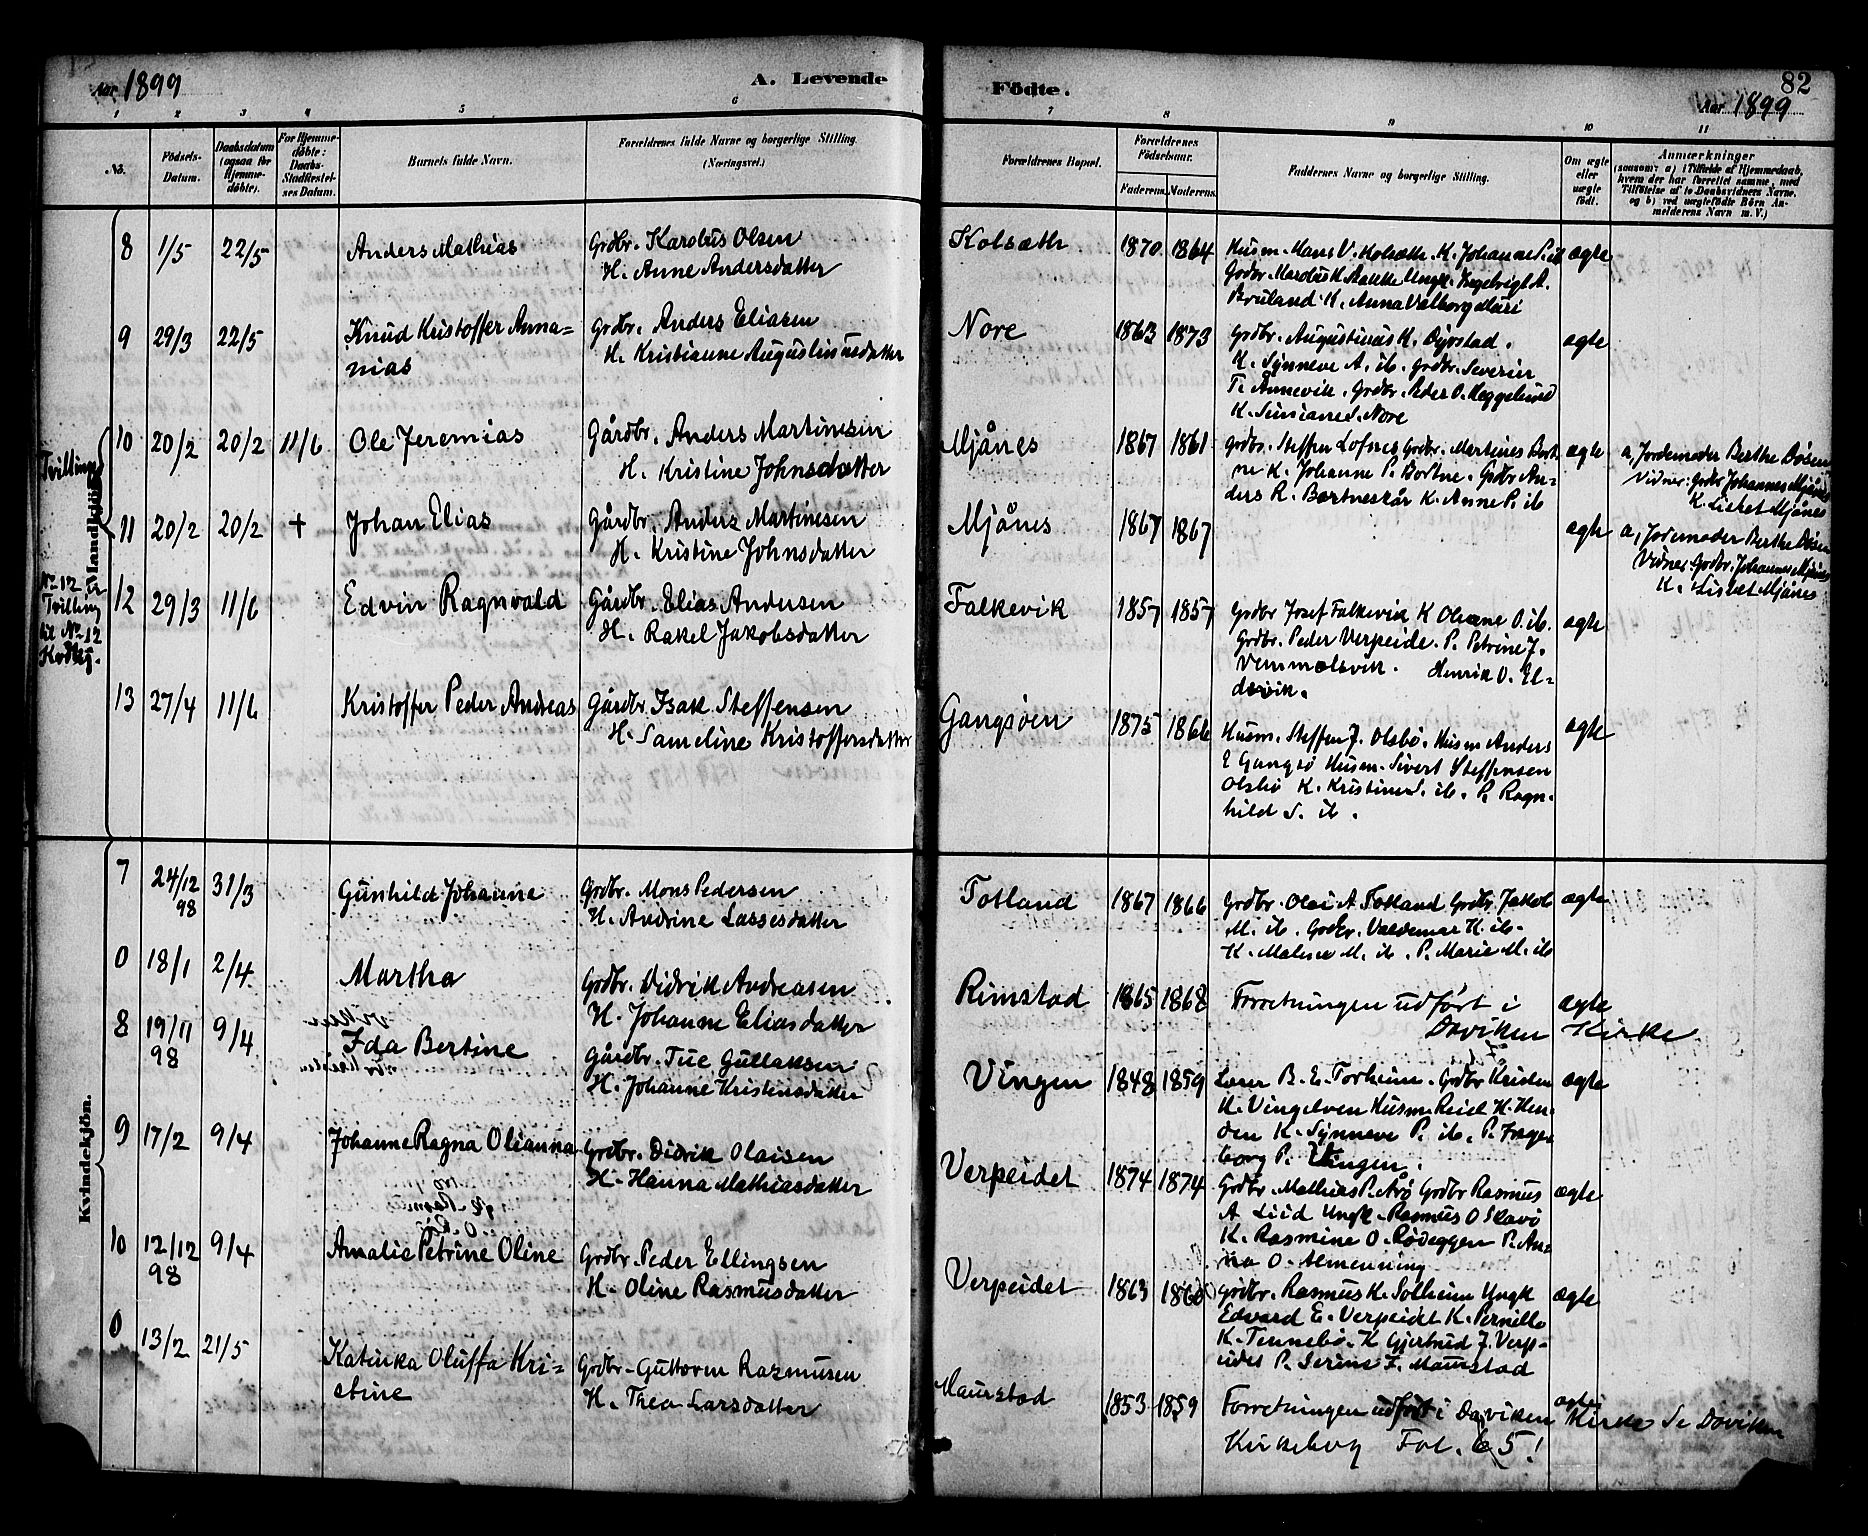 Aar 1899
A. Levende
Födte.
82
Aar 1899
1 2 3 4 5 6 7 8 9 10 11
No.
Födsels-
Datum.
Daabsdatum
(ogsaa for
Hjemme-
döbte).
For Hjemme-
döbte:
Daabs-
Stadfæstel-
ses Datum.
Barnets fulde Navn.
Forældrenes fulde Navne og borgerlige Stilling.
(Næringsvei.)
Forældrenes Bopæl.
Forældrenes
Födselsaar.
Faderens. Moderens.
Faddernes Navne og borgerlige Stilling.
Om ægte
eller
uægte
födt.
Anmærkninger
(saasom: a) i Tilfælde af Hjemmedaab,
hvem der har forrettet samme, med
Tilföielse af to Daabsvidners Navne,
og b) ved uægtefödte Börn An-
melderens Navn m. V.)
Mandkjön.
8 1/5 22/5 Anders Mathias Grdbr. Karolus Olsen
H. Anne Andersdatter
Kolsæth 1870 1864 Husm. Hans V. Kolsæth K. Johanne S. ib ægte
Bruland K. Anna Valborg
9 29/3 22/5 Knud Kristoffer Anna=
nias
Grdbr. Anders Eliasen
H. Kristianne Augustinusdatter
Nore 1863 1873 Grdbr. Augustinus K. ægte
K. Synneve A. ib. Grdbr. Severin
T. Annevik. Grdbr. Peder O. Heggelund
Nore
Tvilling
10 20/2 20/2 11/6 Ole Jeremias Gårdbr. Anders Martinesen
H. Kristine Johnsdatter
Mjånes 1867 1861 Grdbr. Steffen Lofnes Grdbr. Martines Bort
ne K. Johanne P. Bortne. Grdbr An-
ders R. Bortneskår K. Anne P. ib
ægte a, Jordemoder Berthe Dösen
Vidner: Grdbr Johannes Mjånes
K. Lisbet Mjånes
11 20/2 20/2 + Johan Elias Gårdbr. Anders Martinesen
H. Kristine Johnsdatter
Mjånes 1867 1867 ægte a, Jordemoder Berthe Dösen
Vidner Grdbr. Johannes Mjånes
K. Lisbet Mjånes
No 12
Tvilling
til No 12
Kvdkj.
12 29/3 11/6 Edvin Ragnvald Gårdbr. Elias Andersen
H. Rakel Jakobsdatter
Falkevik 1857 1857 Grdbr Josef Falkevik K Oliane O. ib. ægte
Grdbr. Peder Verpeide. P. Petrine J.
Vemmelsvik. Henrik O. El=
devik.
13 27/4 11/6 Kristoffer Peder Andreas Gårdbr. Isak Steffensen
H. Sameline Kristoffersdatter
Gangsöen 1875 1866 Husm. Steffen J. Olsbö. Husm Anders ægte
E Gangsö Husm. Sivert Steffensen
Olsbö K. Kristine S. ib. P. Ragn-
hild S. ib.
Kvindekjön.
7 24/12 98 31/3 Gunhild Johanne Grdbr. Mons Pedersen
H. Andrine Lassesdatter
Totland 1867 1866 Grdbr. Olai A Totland Grdbr. Jakob ægte
M. ib. Grdbr. Valdemar H. ib.
K. Malene M. ib. P. Marie M. ib
0 18/1 2/4 Martha Grdbr. Didrik Andreasen
H. Johanne Eliasdatter
Rimstad 1865 1868 Forretningen udført i ægte
Daviken Kirke
8 19/11 98 9/4 Ida Bertine Gårdbr. Tue Gullaksen
H. Johanne Kristensdatter
Vingen 1848 1859 Lærer B. E. Torheim. Grdbr Kristen ægte
H. Vingelven Husm Reiel H. Hen-
den K. Synneve P. ib. P. Inge-
borg P. Vingen.
9 17/2 9/4 Johanne Ragna Olianna Grdbr. Didrik Olaisen
H. Hanna Mathiasdatter
Verpeidet 1874 1874 Grdbr. Mathias P. Arö Grdbr Rasmus ægte
A Liid Ungk. Rasmus O Skavö
K. Rasmine O. Rödeggen P. An=
na O. Almenning
10 12/12 98 9/4 Amalie Petrine Oline Grdbr. Peder Ellingsen
H. Oline Rasmusdatter
Verpeidet 1863 1860 Grdbr. Rasmus K. Solheim Ungk ægte
Edvard E. Verpeidet K. Pernille
K. Tennebö. K Gjertrud J. Verp-
eidet P. Serine F. Maurstad
0 13/2 21/5 Katinka Oluffa Kri=
stine
Grdbr. Guttorm Rasmusen
H. Thea Larsdatter
Maurstad 1853 1859 Forretningen udført i Daviken ægte Kirke Se Daviken
Kirkebog Fol. 65!